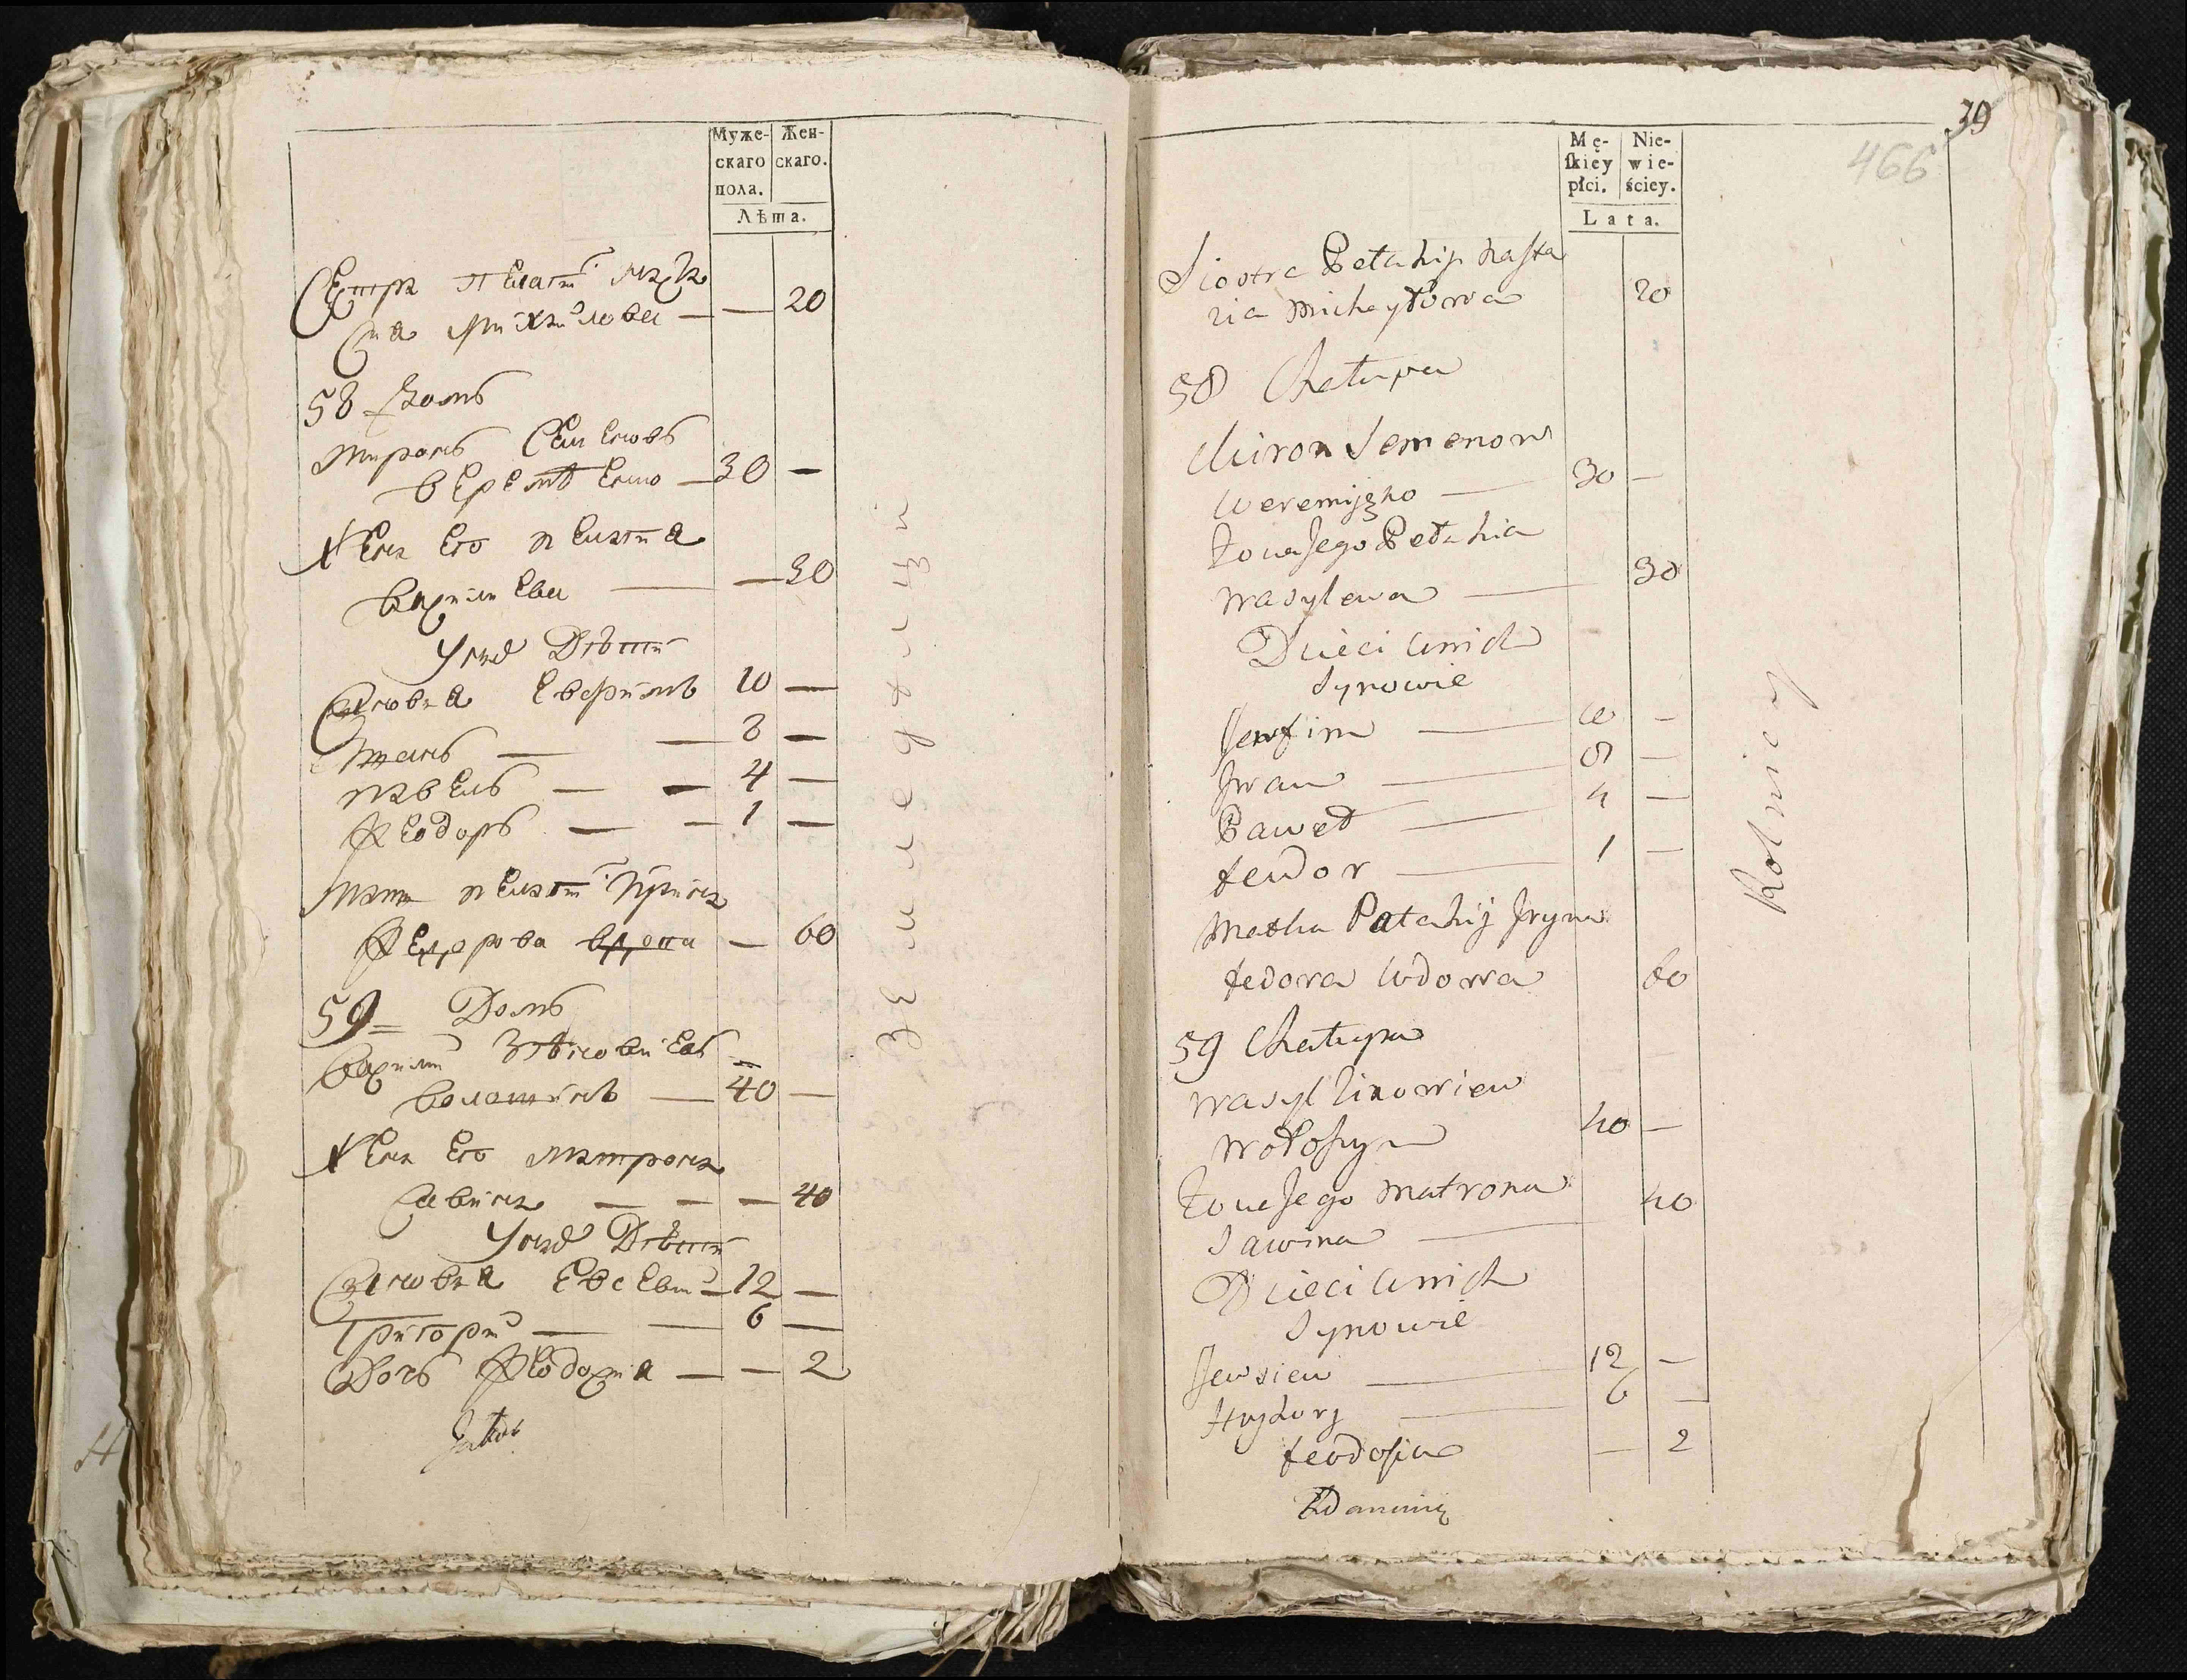 Муже-
скаго
пола.
Жен-
скаго.
Лѣта.
Сестра Пелагіи
Михайлова — — 20
58 Домъ
Миронъ Семеновъ
Веремѣенко — 30 —
Жена Его Пелагия
Васильева — — 30
У них Дѣти
Сыновья Евфимъ 10 —
Иванъ — — 8 —
Павелъ — — 4 —
Феодоръ — — 1 —
Мать Пелагіи Ирина
Федорова вдова — 60
59 Домъ
Василий Зѣновиевъ
Волошинъ — 40 —
Жена Его Матрона
Савина — — — 40
У них Дѣти
Сыновья Евсевий — 12 —
Григорий — — 6 —
Дочь Феодосия — — 2
Земледелцы
39
466
Mę-
ſkiey
płci.
Nie-
wie-
ściey.
Lata.
Siostra Pełahij Nasta
zia Michayłowa 20
58 Chałupa
Miron Semenow
Weremijęko — 30 —
Żona Jego Pełahia
Wasylewa — 30
Dzieci u nich
Synowie
Jewfim — 10 —
Jwan — 8 —
Paweł — 4 —
Feudor — 1 —
Matka Pałahij Jryna
Fedora Wdowa 60
59 Chałupa
Wasyl Zinowiew
Wołoszyn 40 —
Żona Jego Matrona
Sawina — 40
Dzieci u nich
Synowie
Jewsiew — 12 —
Hryhory — 6 —
Feodosia — 2
Rolnicy